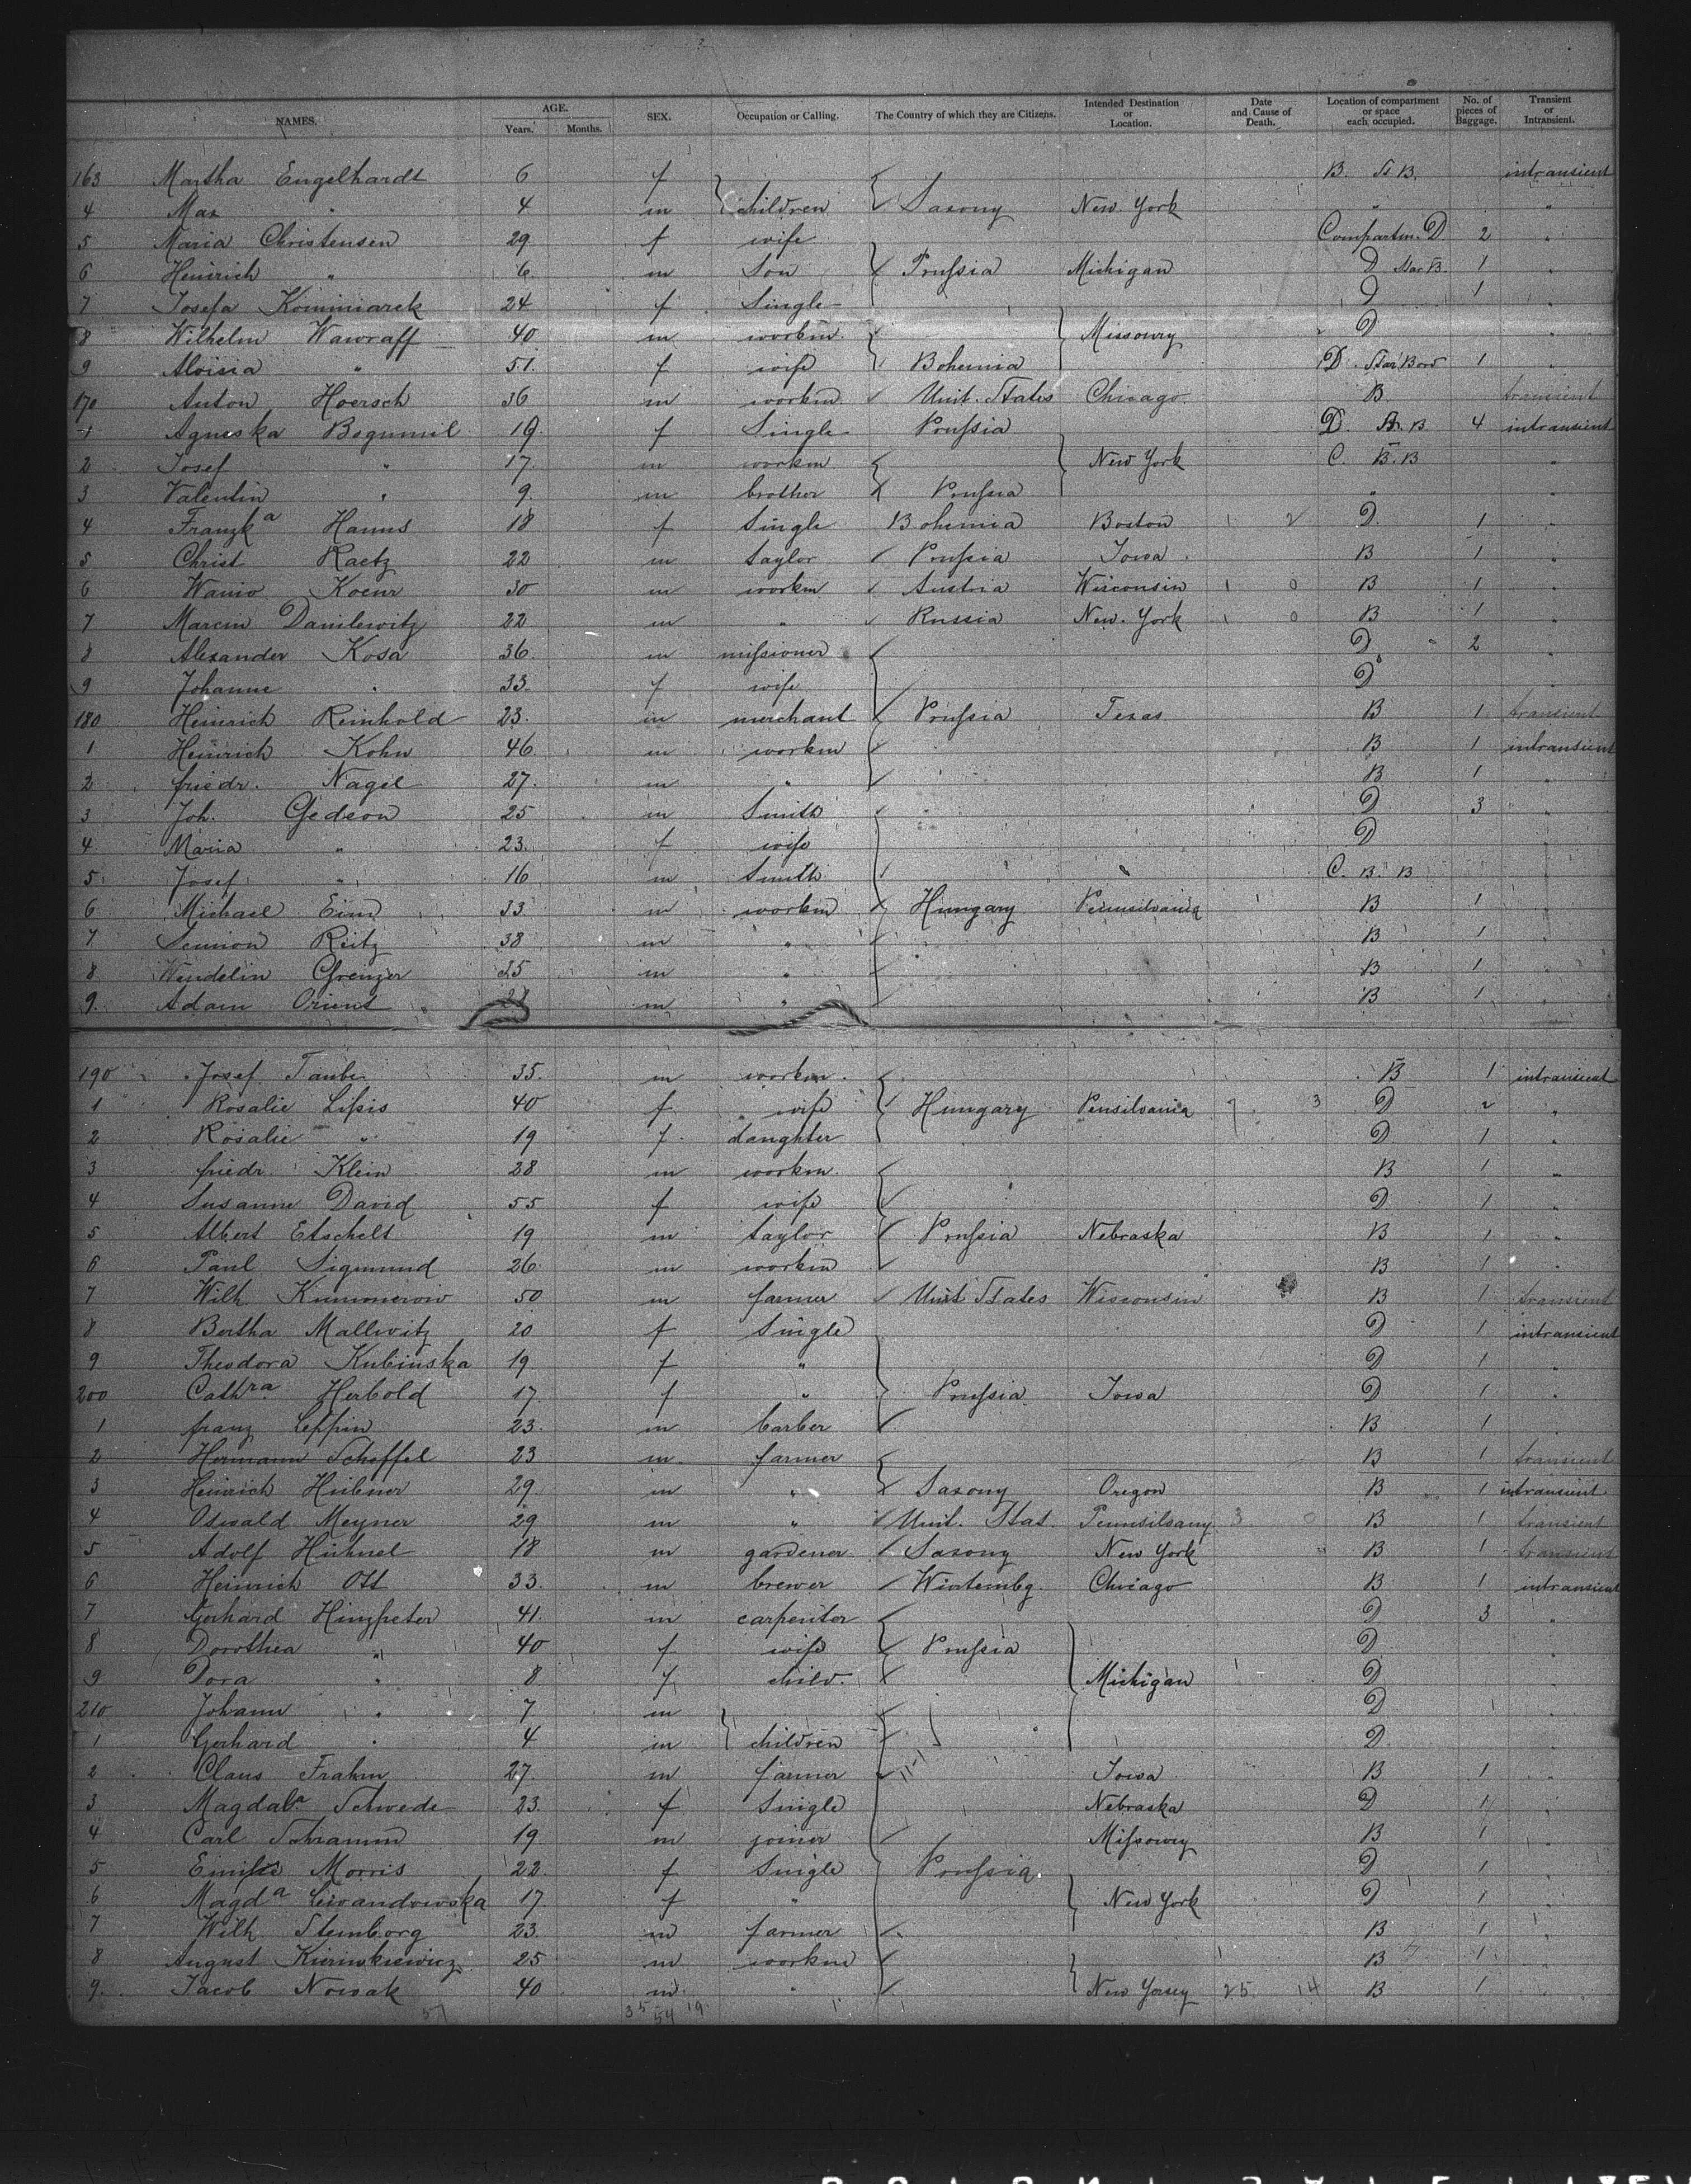 NAMES. AGE. Years. Months. SEX. Occupation or Calling. The Country of which they are Citizens. Intended Destination or Location. Date and Cause of Death. Location of compartment or space each occupied. No. of pieces of Baggage. Transient or Intransient.
163 Martha Engelhardt 6 f B. St B. intransient
4 Max " 4 m children Saxony New York " "
5 Maria Christensen 29 f wife Compartm. D 2 "
6 Heinrich " 6 m Son Prussia Michigan D Star B. 1 "
7 Josefa Kominiarek 24 f Single D 1
8 Wilhelm Wawraff 40 m workm. Missoury D "
9 Aloisia " 51 f wife Bohemia D Star Bord 1 "
170 Anton Hoersch 36 m workm Unit. States Chicago B transient
1 Agneska Bogumil 19 f Single Prussia D. St. B 4 intransient
2 Josef " 17 m workm New York C. B. B "
3 Valentin " 9 m brother Prussia " "
4 Franzka Hanns 18 f Single Bohemia Boston D. 1 "
5 Christ Raetz 22 m taylor Prussia Iowa B 1 "
6 Wanio Koenr 30 m workm Austria Wisconsin 1 0 B 1 "
7 Marcin Danilewitz 22 m " Russia New York 1 0 B 1 "
8 Alexander Kosa 36 m missioner D 2 "
9 Johanne " 33 f wife D "
180 Heinrich Reinhold 23 m merchant Prussia Texas B 1 transient
1 Heinrich Kohn 46 m workm B 1 intransient
2 friedr. Nagel 27 m " B 1 "
3 Joh. Gedeon 25 m Smith D 3 "
4 Maria " 23 f wife D "
5 Josef " 16 m Smith C. B. B "
6 Michael Eim 33 m workm Hungary Pennsilvania B 1 "
7 Reitz 38 m " B 1 "
8 Wendelin Grenzer 25 m " B 1 "
9 Adam Orient m " B 1 "
190 Josef Taube 35 m workm. B 1 intransient
1 Rosalie Lipsis 40 f wife Hungary Pensilvania 7 3 D 2 "
2 Rosalie " 19 f daughter D 1 "
3 friedr. Klein 28 m workm. B 1 "
4 Susanne David 55 f wife D 1 "
5 Albert Etschelt 19 m taylor Prussia Nebraska B 1 "
6 Paul Sigmund 26 m workm B 1 "
7 Wilh Kummerow 50 m farmer Unit States Wisconsin B 1 transient
8 Bertha Mallwitz 20 f Single D 1 intransient
9 Theodora Kubinska 19 f " D 1 "
200 Cathra Herbold 17 f " Prussia Iowa D 1 "
1 franz Leppin 23 m barber B 1
2 Hermann Scheffel 23 m farmer B 1 transient
3 Heinrich Hübner 29 m " Saxony Oregon B 1 intransient
4 Oswald Meyner 29 m " Unit. Stat Pennsilvany 3 0 B 1 transient
5 Adolf Hühnel 18 m gardener Saxony New York B 1 transient
6 Heinrich Ott 33 m brewer Wirtembg. Chicago B 1 intransient
7 Gerhard Himpeter 41 m carpenter D 3 "
8 Dorothea " 40 f wife Prussia D
9 Dora " 8 f child. Michigan D
210 Johann " 7 m D
1 Gerhard " 4 m children D
2 Claus Frahm 27 m farmer Iowa B 1 "
3 Magdala Schwede 23 f Single Nebraska D 1 "
4 Carl Schramm 19 m joiner Missoury B 1 "
5 Emilie Morris 22 f Single Prussia. D 1 "
6 Magda Lewandowska 17 f " New York D 1 "
7 Wilh Steinborg 23 m farmer B 1 "
8 August 25 m workm B 1 "
9 Jacob Nowak 40 m " New Yersey 25 14 B 1 "
57 35 54 19